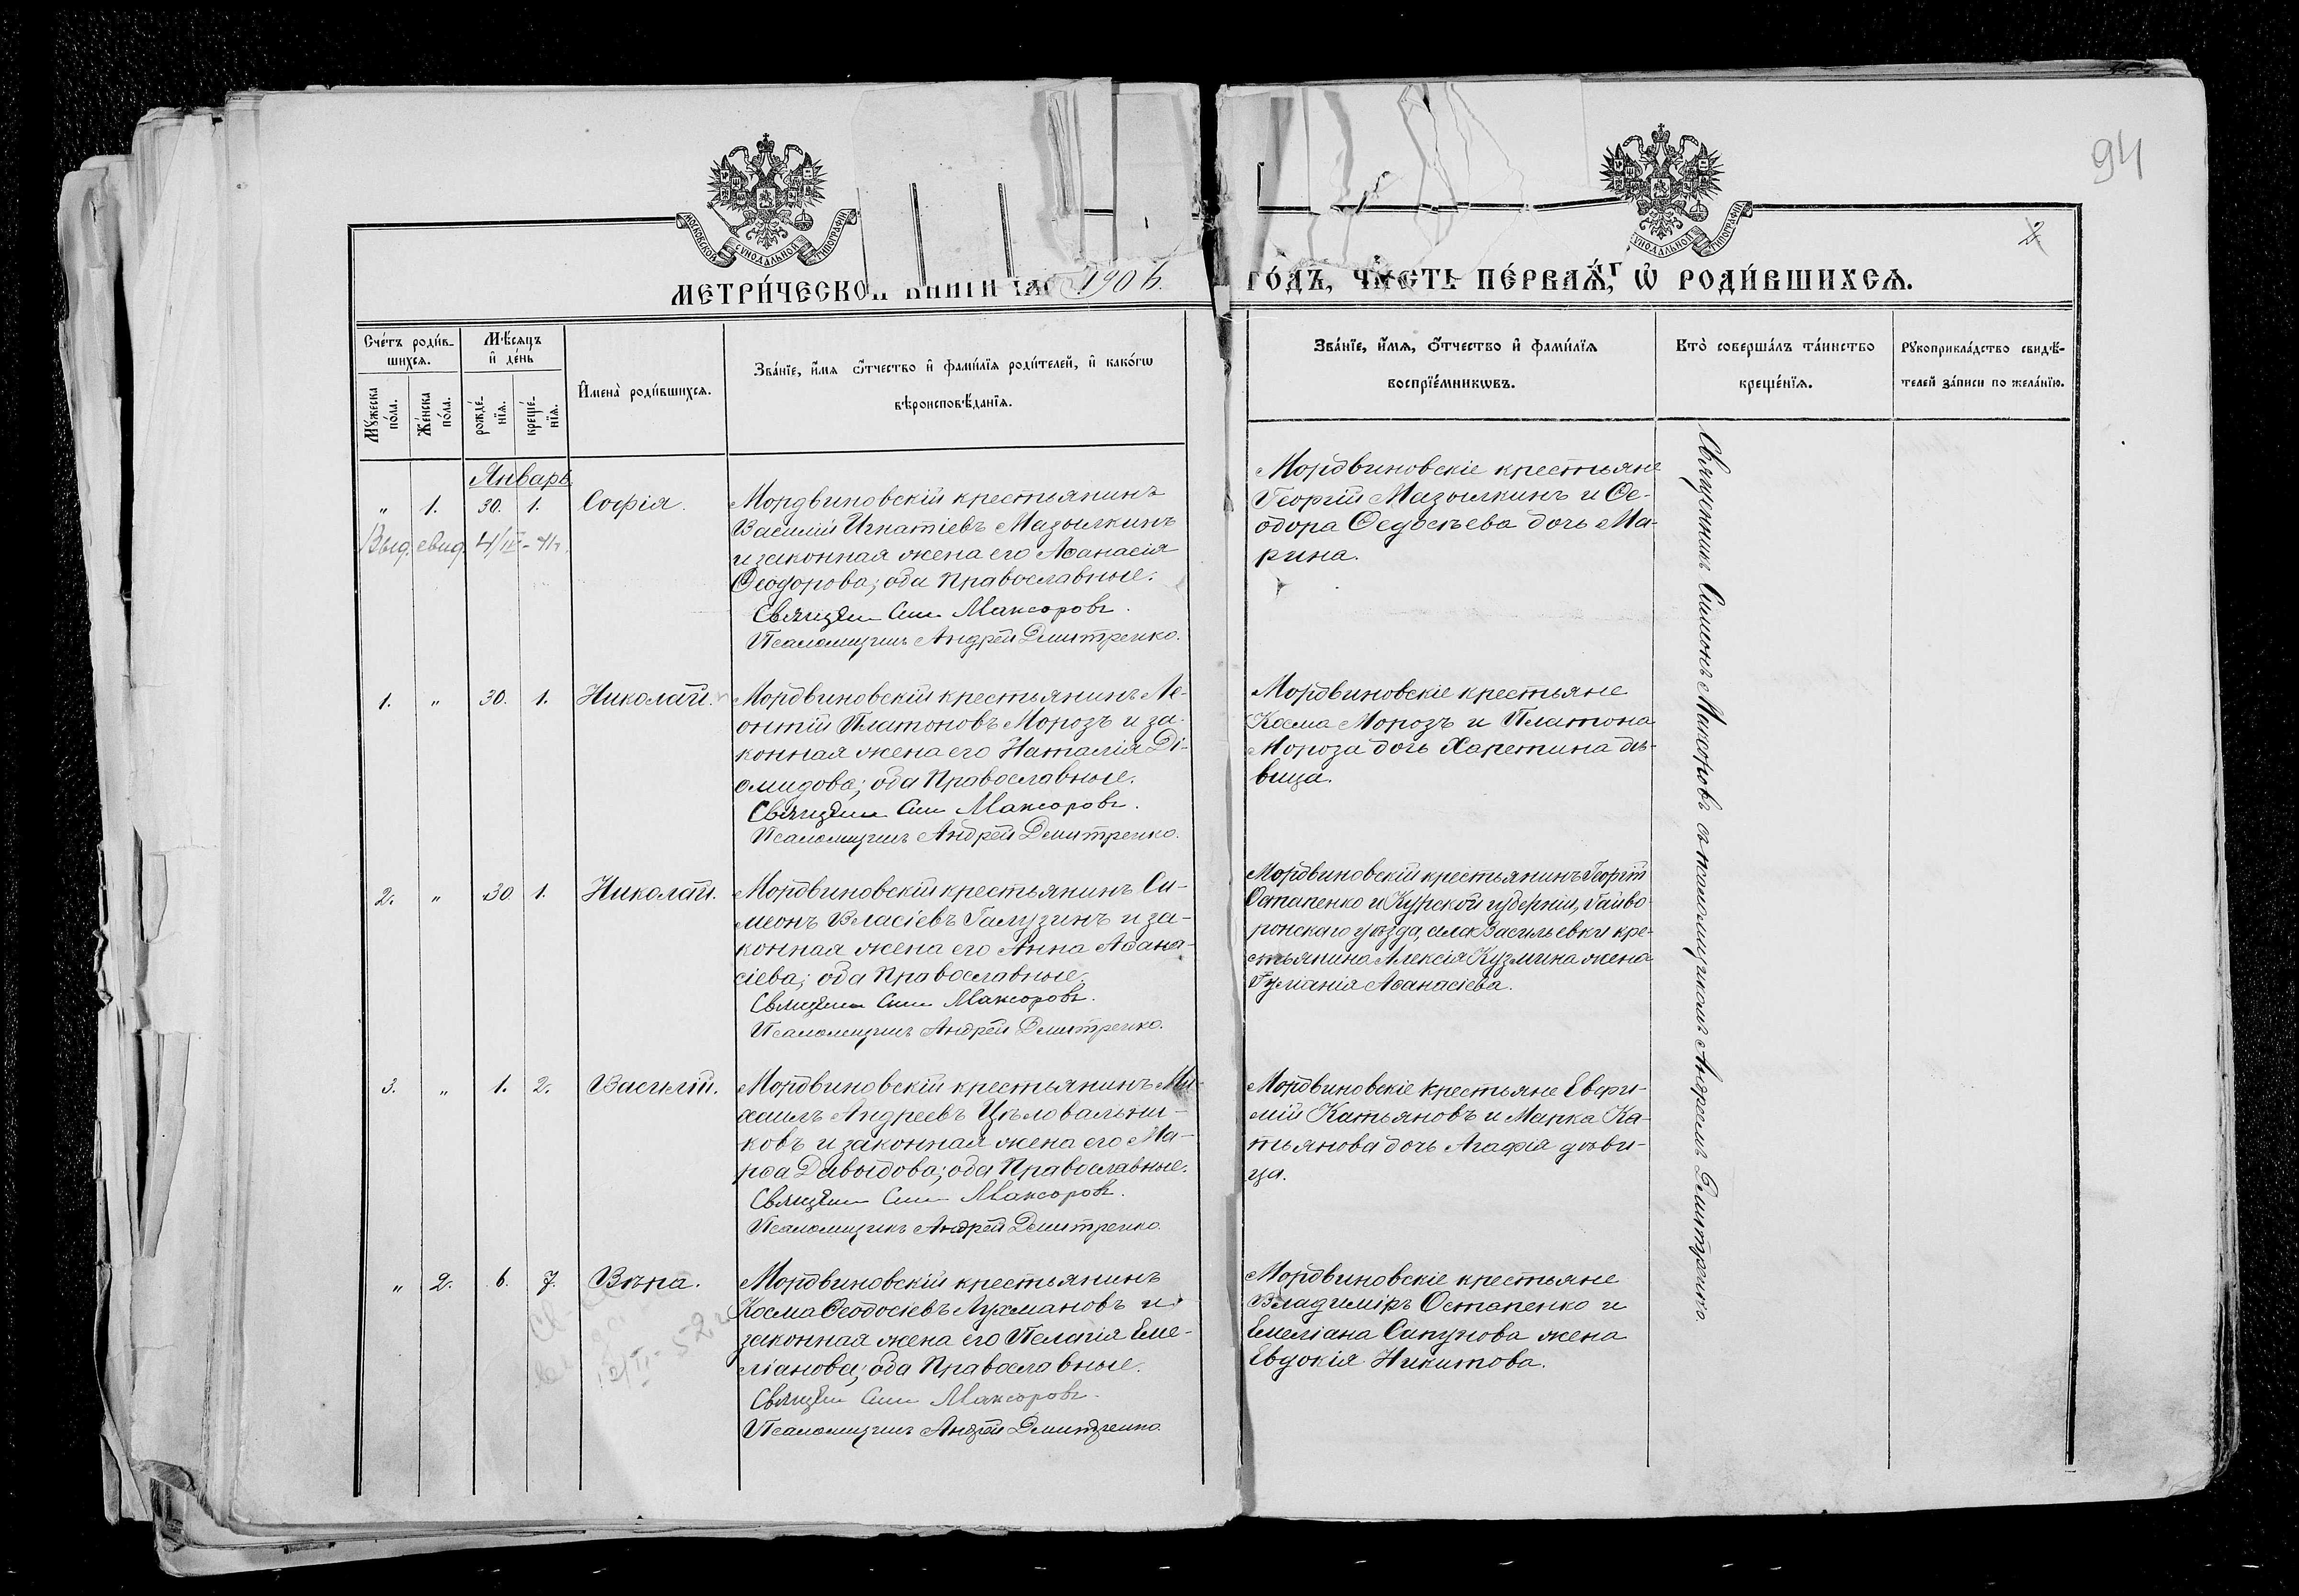 94
2
МОСКОВСКОЙ СѴНОДАЛЬНОЙ ТИПОГРАФІИ
СѴНОДАЛЬНОЙ ТИПОГРАФІИ
МЕТРИ́ЧЕСКОЙ КНИГИ 1906. ГО́ДЪ, ЧА́СТЬ ПЕ́РВАЯ, Ѡ҆ РОДИ́ВШИХСЯ.
Сче́тъ роди́в-
шихся.
Мѣ́сяцъ
и҆ де́нь
Му́жеска
по́ла.
Же́нска
по́ла.
рожде́-
нїя.
креще́-
нїя.
И҆мена̀ роди́вшихся.
Зва́нїе, и҆́мя ѻ҆́тчество и҆ фами́лїя роди́телей, и҆ како́гѡ
вѣроисповѣ́данїя.
Зва́нїе, и҆́мя, ѻ҆́тчество и҆ фами́лїя
воспрїе́мникѡвъ.
Кто̀ соверша́лъ та́инство
креще́нїя.
Рꙋкоприкла́дство свидѣ́-
телей за́писи по жела́нїю.
Январь
" 1. 30. 1. Софія.
Выд. свид. 4/IV-41г.
Мордвиновскій крестьянинъ
Василій Игнатіевъ Мазылкинъ
и законная жена его Аѳанасія
Ѳеодорова; оба православные.
Священ. Сим. Максоровъ.
Псаломщикъ Андрей Дмитренко.
Мордвиновскіе крестьяне
Георгій Мазылкинъ и Ѳе-
одора Ѳедосѣева дочь Ма-
рина.
1. " 30. 1. Николай.
Мордвиновскій крестьянинъ Ле-
онтій Платоновъ Морозъ и за-
конная жена его Наталія Ді-
омидова; оба православные.
Священ. Сим. Максоровъ.
Псаломщикъ Андрей Дмитренко.
Мордвиновскіе крестьяне
Косма Морозъ и Платона
Мороза дочь Харетина дѣ-
вица.
2. " 30 1. Николай.
Мордвиновскій крестьянинъ Си-
меонъ Власіевъ Галузинъ и за-
конная жена его Анна Аѳана-
сіева; оба православные.
Священ. Сим. Максоровъ.
Псаломщикъ Андрей Дмитренко.
Мордвиновскій крестьянинъ Георгій
Остапенко и Курской губерніи, Гайво-
ронскаго уѣзда, села Васильевки кре-
стьянина Алексія Кузмина жена
Іуліанія Аѳанасіева.
3. " 1. 2. Василій.
Мордвиновскій крестьянинъ Ми-
хаилъ Андреевъ Цѣловальни-
ковъ и законная жена его Ма-
рѳа Давыдова; оба православные.
Священ. Сим. Максоровъ.
Псаломщикъ Андрей Дмитренко.
Мордвиновскіе крестьяне Евфи-
мій Катьяновъ и Марка Ка-
тьянова дочь Агафія дѣви-
ца.
" 2. 6. 7. Вѣра.
Мордвиновскій крестьянинъ
Косма Ѳеодосіевъ Лухмановъ и
законная жена его Пелагія Еме-
ліанова; оба православные.
Священ. Сим. Максоровъ.
Псаломщикъ Андрей Дмитренко.
Мордвиновскіе крестьяне
Владиміръ Остапенко и
Емеліана Сапунова жена
Евдокія Никитова.
Священникъ Симеонъ Максоровъ съ псаломщикомъ Андреемъ Дмитренко.